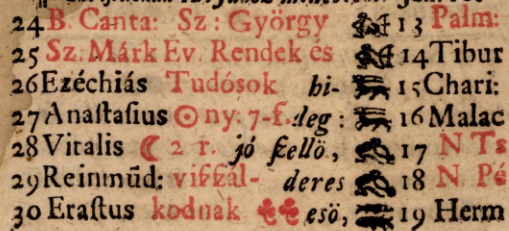 24 B. Canta: Sz: György 13 Palm:
25 Sz: Márk Ev. Rendek és 14 Tibur
26 Ezéchiás Tudósok hi- 15 Chari:
27 Anaſtaſius ☉ ny: 7-f. deg: 16 Malac
28 Vitalis ☾ 2 r. jó ſzellö, 17 N Ts
29 Reinmūd: viſſzál- deres 18 N. Pé
30 Eraſtus kodnak esö, 19 Herm